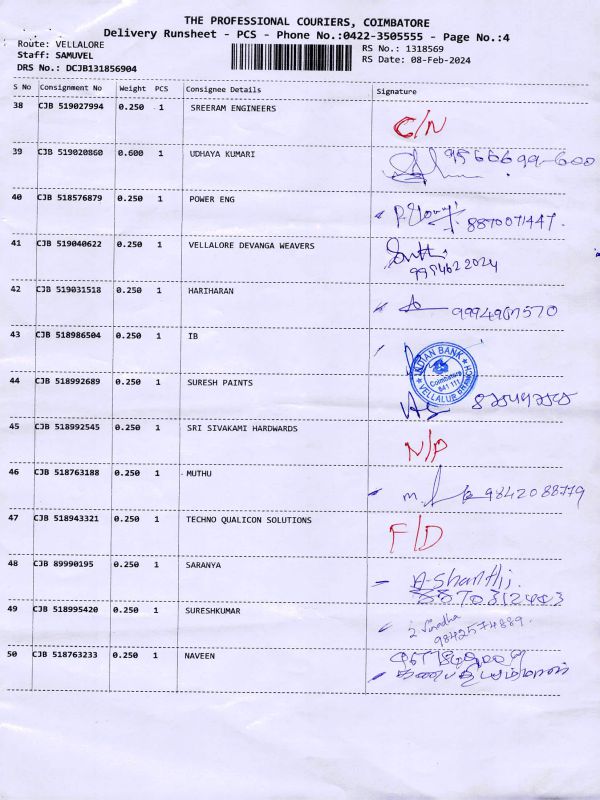 THE PROFESSIONAL COURIERS, COIMBATORE
Delivery Runsheet - PCS - Phone No.:0422-3505555 - Page No.:4
Route: VELLALORE RS No.: 1318569
Staff: SAMUVEL RS Date: 08-Feb-2024
DRS No.: DCJB131856904
S No Consignment No Weight PCS Consignee Details Signature
38 CJB 519027994 0.250 1 SREERAM ENGINEERS
C/N
39 CJB 519020860 0.600 1 UDHAYA KUMARI
40 CJB 518576879 0.250 1 POWER ENG
8870071447.
41 CJB 519040622 0.250 1 VELLALORE DEVANGA WEAVERS
9994622024
42 CJB 519031518 0.250 1 HARIHARAN
9994967570
43 CJB 518986504 0.250 1 IB
INDIAN BANK
Coimbatore
641 111
VELLALUR BRANCH
44 CJB 518992689 0.250 1 SURESH PAINTS
45 CJB 518992545 0.250 1 SRI SIVAKAMI HARDWARDS
N/P
46 CJB 518763188 0.250 1 MUTHU
9842088779
47 CJB 518943321 0.250 1 TECHNO QUALICON SOLUTIONS
F/D
48 CJB 89990195 0.250 1 SARANYA
A-Shanthi.
8870312403
49 CJB 518995420 0.250 1 SURESHKUMAR
9842574889.
50 CJB 518763233 0.250 1 NAVEEN